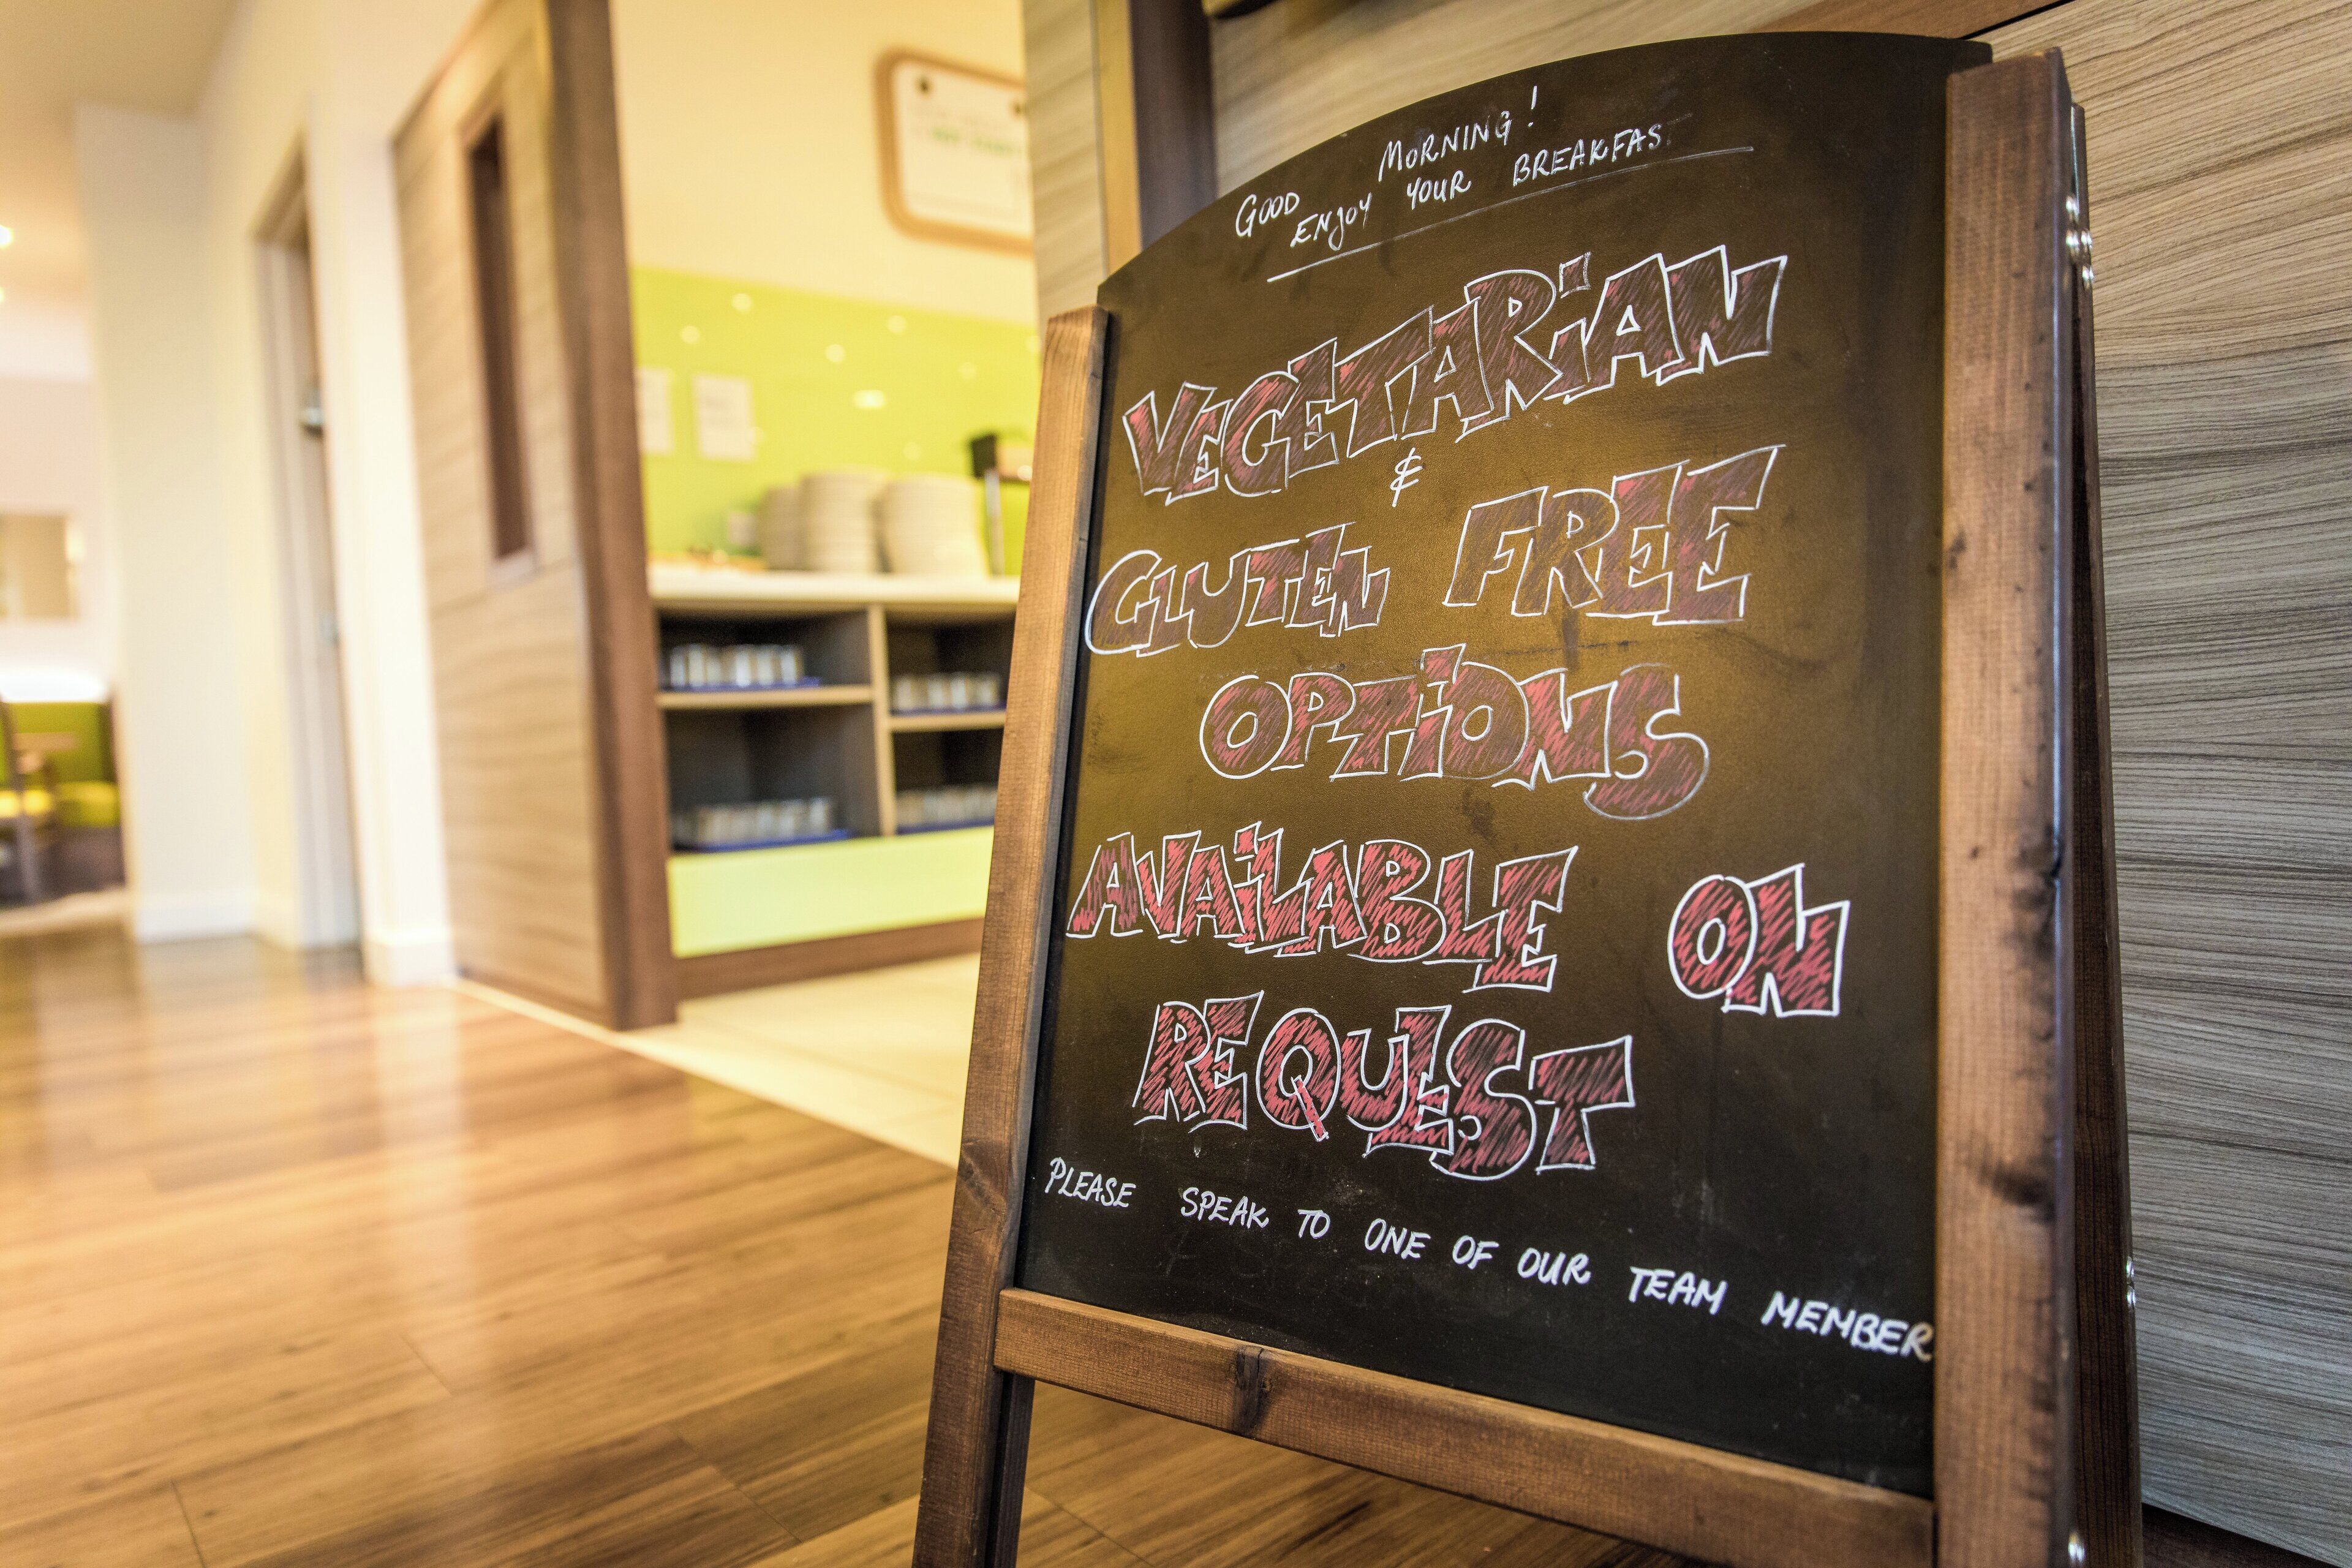 GOOD MORNING!
ENJOY YOUR BREAKFAST
VEGETARIAN
&
GLUTEN FREE
OPTIONS
AVAILABLE ON
REQUEST
PLEASE SPEAK TO ONE OF OUR TEAM MEMBER